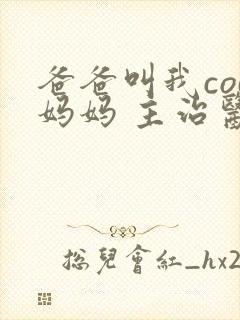 爸爸叫我co
妈妈 主治醫
總兒會紅_hx2